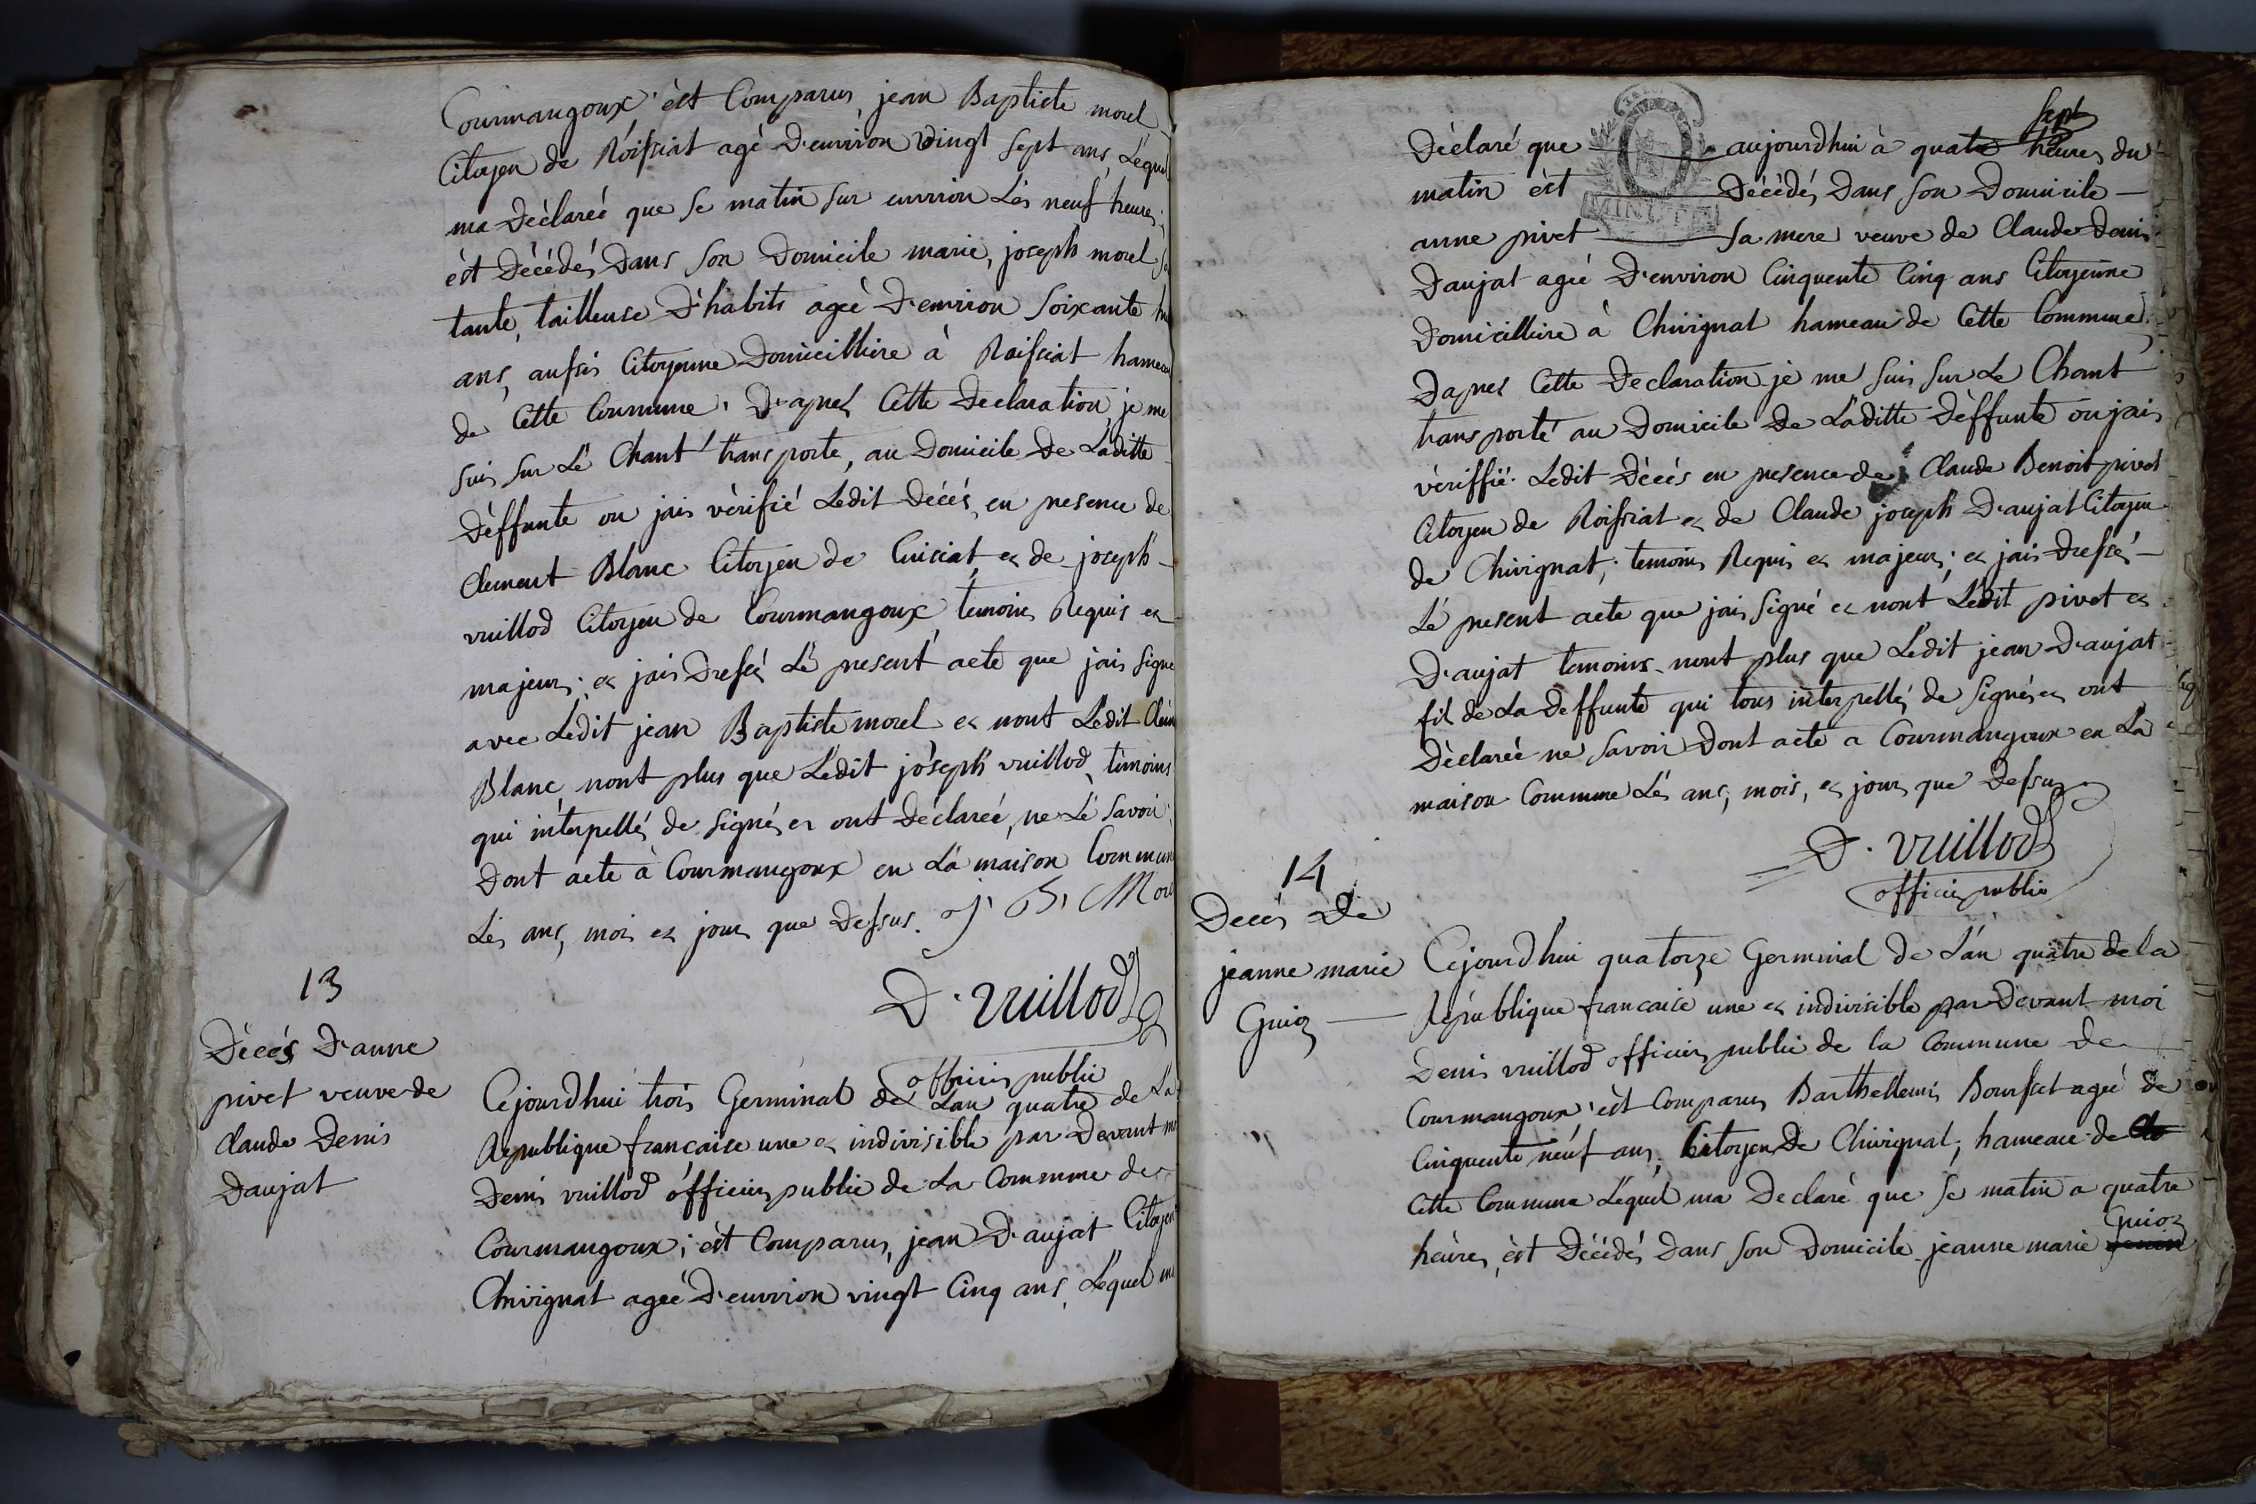 Courmangoux èst Comparus jean Baptiste morel
Citoyen de Roissiat agé D'environ vingt sept ans, Lequel
ma Déclareé que se matin sur environ Lés neuf heures,
èst Décédés Dans son Domicile marie, joseph morel sa
tante, tailleuse D'habits ageé D'environ soixante
ans, aussis Citoyenne Domicilliere à Roissiat hameau
de Cette Commune. D'apres Cette Declaration, je me
suis sur Lé Chant transporte, au Domicile De Laditte
Déffunte ou jais vérifié Ledit Décés, en presence de
Clement Blanc Citoyen de Cuisiat et de joseph
vuillod Citoyen de Courmangoux temoins Requis et
majeurs; et jais Dressé Lé present acte que jais signe
avec Ledit jean Baptiste morel et nont Ledit Clem
Blanc nont plus que Ledit joseph vuillod, témoins
qui interpellés de signés et ont Déclareé, ne Lé savoir
Dont acte à Courmangoux en La maison Commune
Lés ans, mois et jours que Dessus. J. B. Morel
D. vuillod
officier public
13
Décés D'anne
pivet veuve de
Claude Denis
Daujat
Cejourdhui trois Germinal de Lan quatre de La
Republique française une et indivisible par Devant moi
Denis vuillod officier public de La Commune de
Courmangoux; èst Comparus, jean D'aujat Citoyen
Chivignat ageé D'environ vingt Cinq ans, Lequel ma
Déclaré que aujourdhui à quatre sept heures du
matin èst Décédés Dans son Domicile
MINUTE
anne pivet sa mere veuve de Claude Denis
Daujat ageé D'environ Cinquente Cinq ans Citoyenne
Domicilliere à Chivignat hameau de Cette Commune.
Dapres Cette Declaration je me suis sur Le Chant
transporté au Domicile De Laditte Déffunte ou jais
vériffié Ledit Décés en presence de Claude Benoit pivet
Citoyen de Roissiat et de Claude joseph D'aujat Citoyen
de Chivignat; temoins Requis et majeurs; et jais Dressé
Lé present acte que jais signé et nont Ledit pivet et
D'aujat temoins nont plus que Ledit jean D'aujat
fil de La Deffunte qui tous interpellés de signés et ont
Déclareé ne savoir Dont acte a Courmangoux en La
maison Commune Lés ans, mois, et jours que Dessus
D. vuillod
officier public
14
Decés De
jeanne marie
Guioz
Cejourdhui quatorze Germinal de L'an quatre de la
République francaise une et indivisible par Devant moi
Denis vuillod officier public de la Commune De
Courmangoux èst Comparus Barthellemis Boursset ageé de
Cinquente neuf ans, Citoyen De Chivignat, hameau de
Cette Commune Lequel ma Declaré que se matin a quatre
heures, èst Décédés Dans son Domicile jeanne marie Guioz